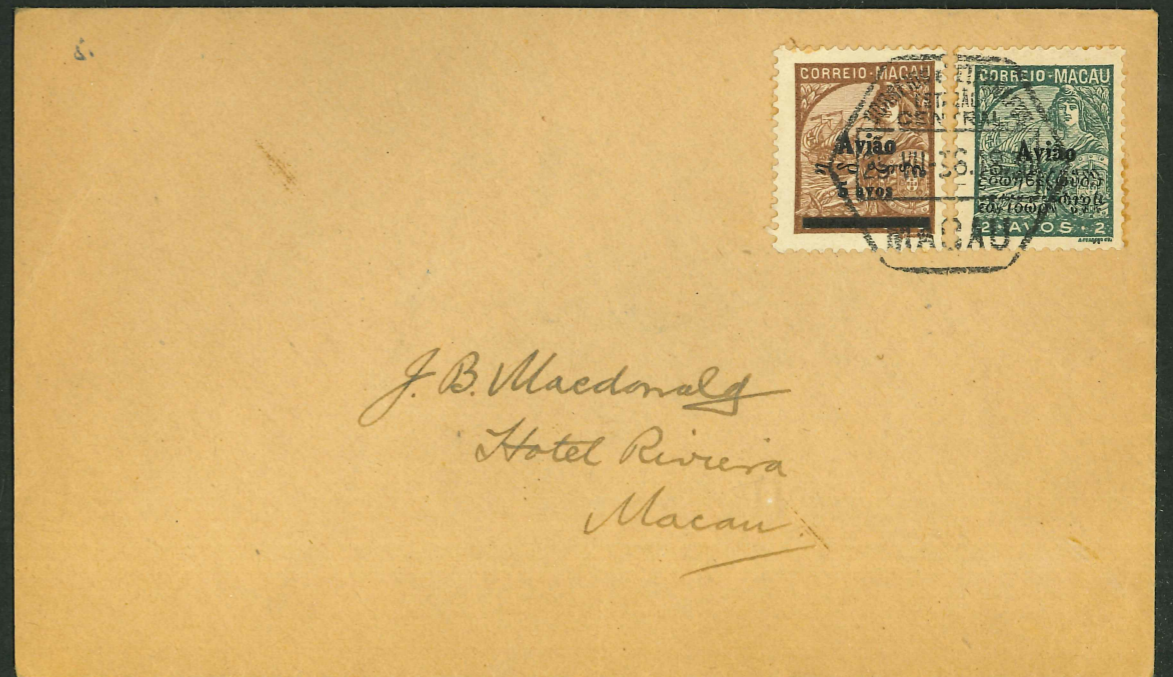 5.
CORREIO - MACAU
Avião
5 avos
CORREIO - MACAU
Avião
2 AVOS 2
CENTRAL
MACAU
J. B. Macdonald
Hotel Riviera
Macau